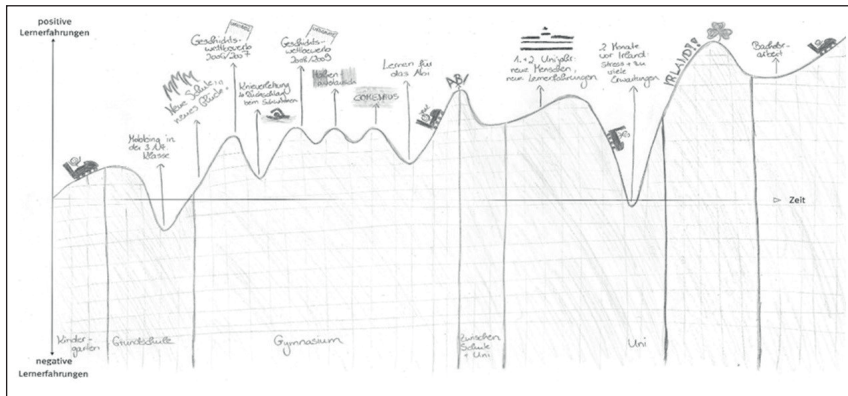 positive
Lernerfahrungen
Mobbing in
der 3./4.
Klasse
MMM
Neue Schule =
neues Glück
Geschichts-
wettbewerb
2006/2007
Knieverletzung
Rückschlag
beim Schwimmen
Geschichts-
wettbewerb
2008/2009
COMENIUS
Lernen für
das Abi
ABI
1.+2. Unijahr:
neue Menschen,
neue Lernerfahrungen
2 Monate
vor Irland:
Stress + zu
viele
Erwartungen
IRLAND!!
Bachelor-
arbeit
Zeit
Kinder-
garten
Grundschule
Gymnasium
Zwischen
Schule
+ Uni
Uni
negative
Lernerfahrungen